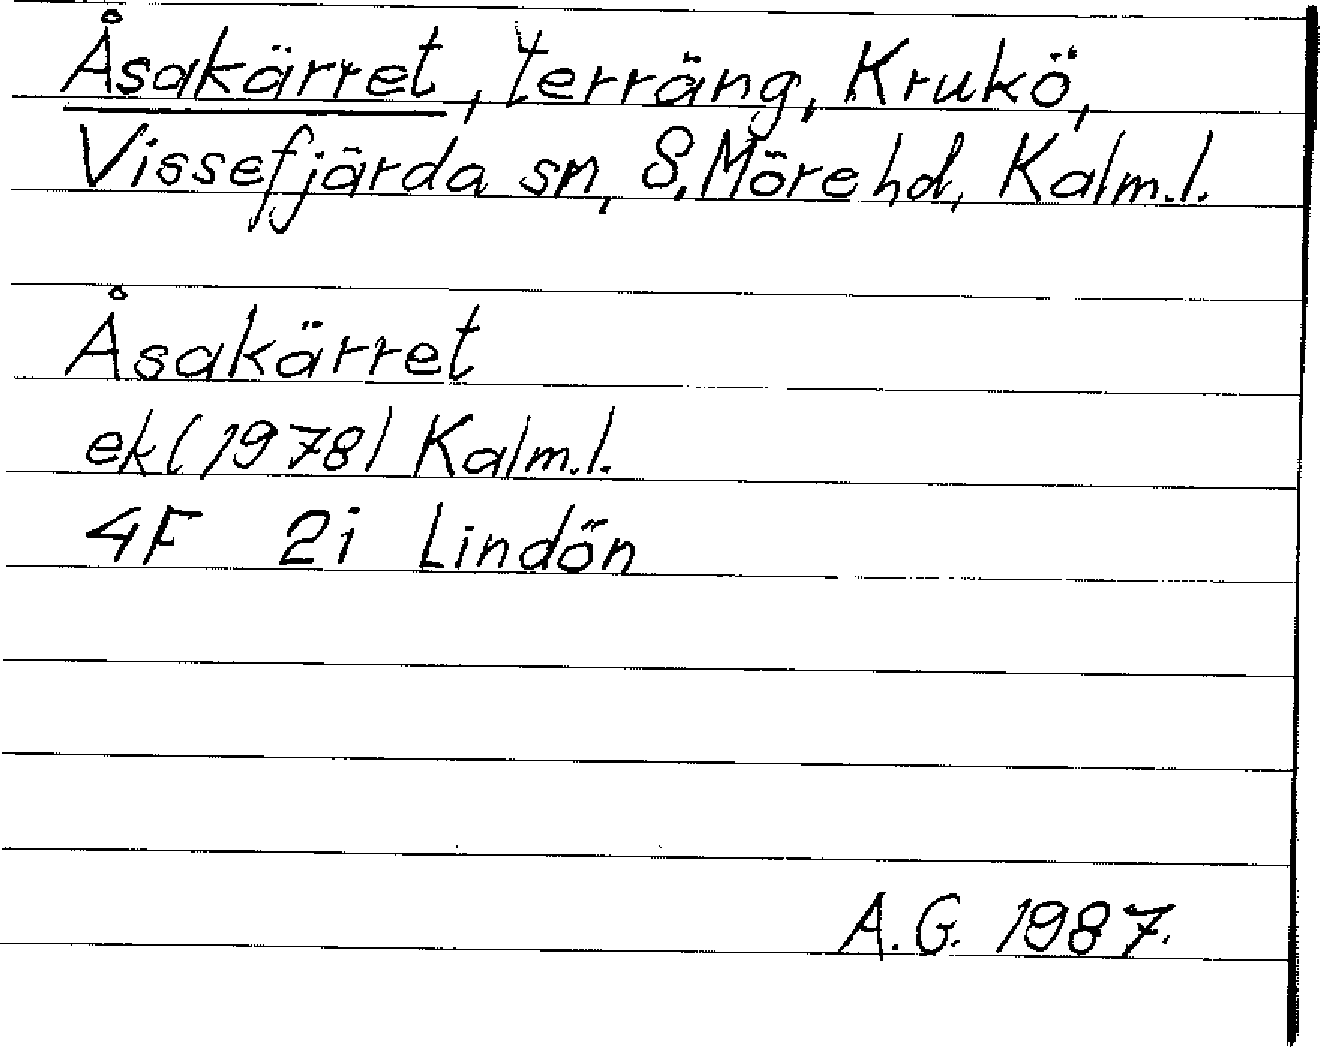 Åsakärret, terräng, Krukö,
Vissefjärda sn, S. Möre hd, Kalm.l.
Åsakärret
ek (1978) Kalm.l.
4F 2i Lindön
A.G. 1987.